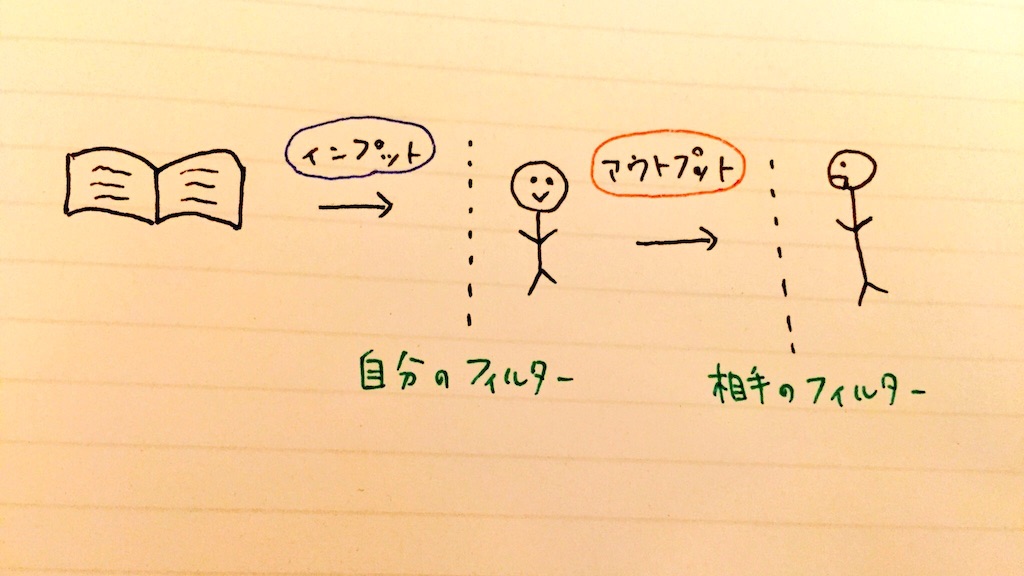 インプット
アウトプット
自分のフィルター
相手のフィルター